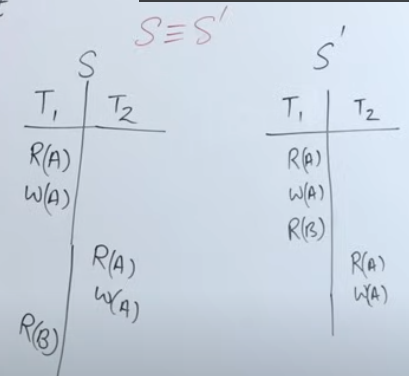 S≡S'
S
T₁ T₂
R(A)
W(A)
R(A)
W(A)
R(B)
S'
T₁ T₂
R(A)
W(A)
R(B)
R(A)
W(A)